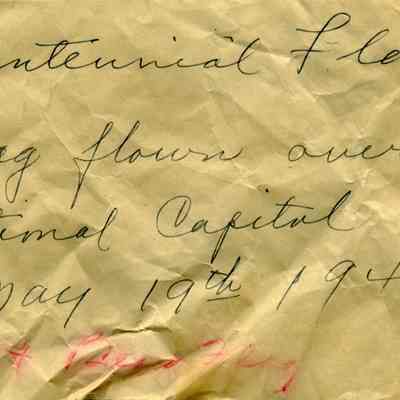 ntennial Fla
ag flown over
tional Capitol
May 19th 194
Flag